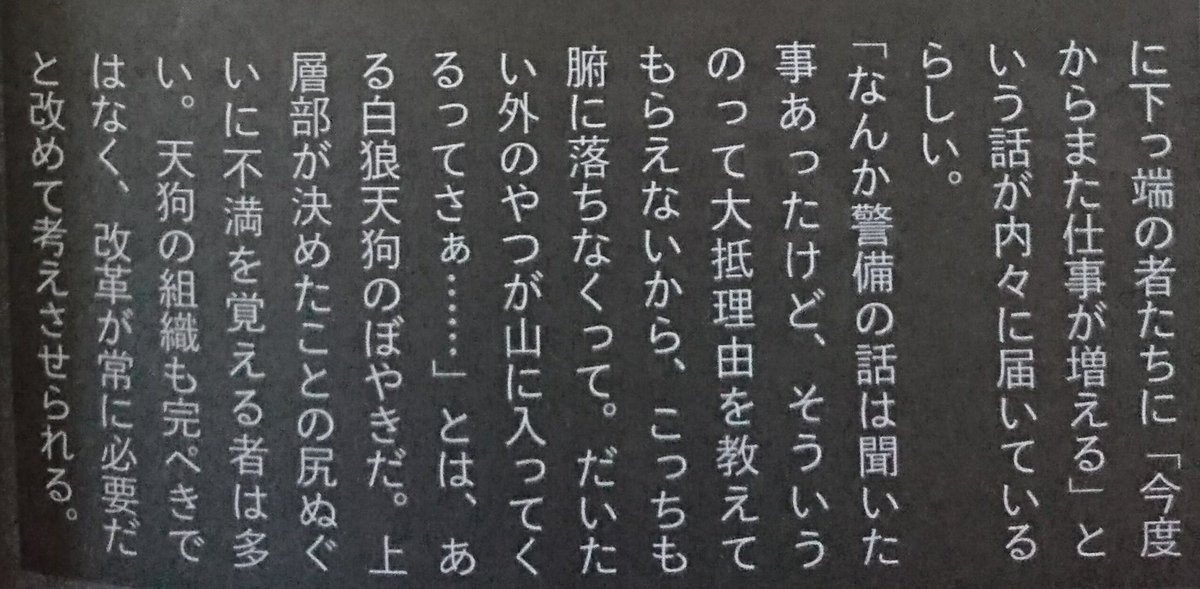 に下っ端の者たちに「今度
からまた仕事が増える」と
いう話が内々に届いている
らしい。
「なんか警備の話は聞いた
事あったけど、そういう
のって大抵理由を教えて
もらえないから、こっちも
腑に落ちなくって。だいた
い外のやつが山に入ってく
るってさぁ……」とは、あ
る白狼天狗のぼやきだ。上
層部が決めたことの尻ぬぐ
いに不満を覚える者は多
い。天狗の組織も完ぺきで
はなく、改革が常に必要だ
と改めて考えさせられる。